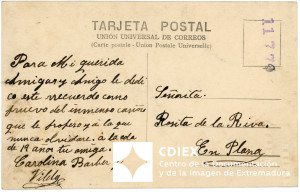 TARJETA POSTAL
UNIÓN UNIVERSAL DE CORREOS
(Carte postale - Union Postale Universelle)
Para Mi querida
Amiga y Amigo le dedi
co este recuerdo como
del inmenso cariño
que le profeso y a la que
nunca olvidare. a la eda
de 19 años tu amiga.
Carolina
Señorita.
Rosita de la Riva.
En Plena
CDIEX
Centro de la Documentación
y de la Imagen de Extremadura